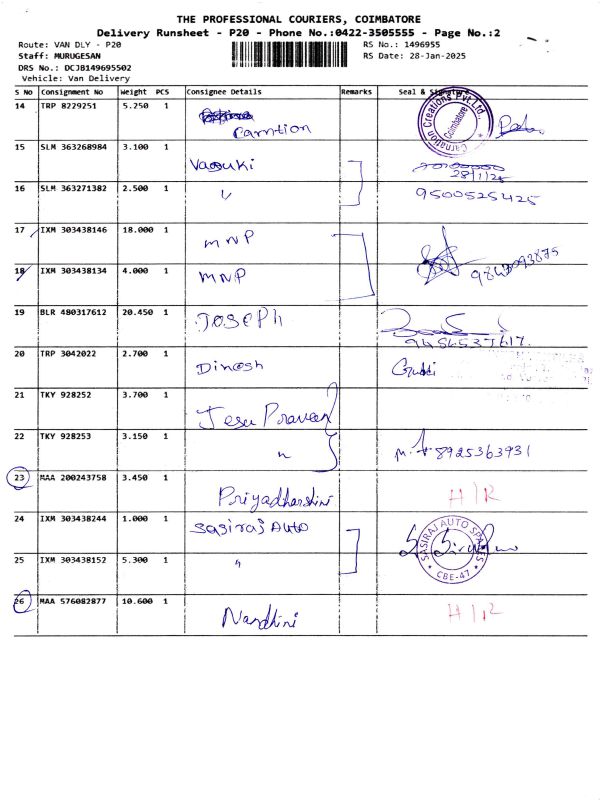 THE PROFESSIONAL COURIERS, COIMBATORE
Delivery Runsheet - P20 - Phone No.:0422-3505555 - Page No.:2
Route: VAN DLY - P20 RS No.: 1496955
Staff: MURUGESAN RS Date: 28-Jan-2025
DRS No.: DCJB149695502
Vehicle: Van Delivery
S No Consignment No Weight PCS Consignee Details Remarks Seal & Signature
14 TRP 8229251 5.250 1 Carnation
Carnation Creations Pvt.Ltd. Coimbatore
15 SLM 363268984 3.100 1 Vasuki
28/1/25
16 SLM 363271382 2.500 1 " 9500525425
17 IXM 303438146 18.000 1 MNP
18 IXM 303438134 4.000 1 MNP
19 BLR 480317612 20.450 1 JOSEPH
9486537617.
20 TRP 3042022 2.700 1 Dinesh
21 TKY 928252 3.700 1 Jesu Praveen
22 TKY 928253 3.150 1 " 8925363931
23 MAA 200243758 3.450 1 Priyadharshini H/R
24 IXM 303438244 1.000 1 Sasiraj Auto
SASIRAJ AUTO SPARES * CBE-47 *
25 IXM 303438152 5.300 1 "
26 MAA 576082877 10.600 1 Nandhini H/R